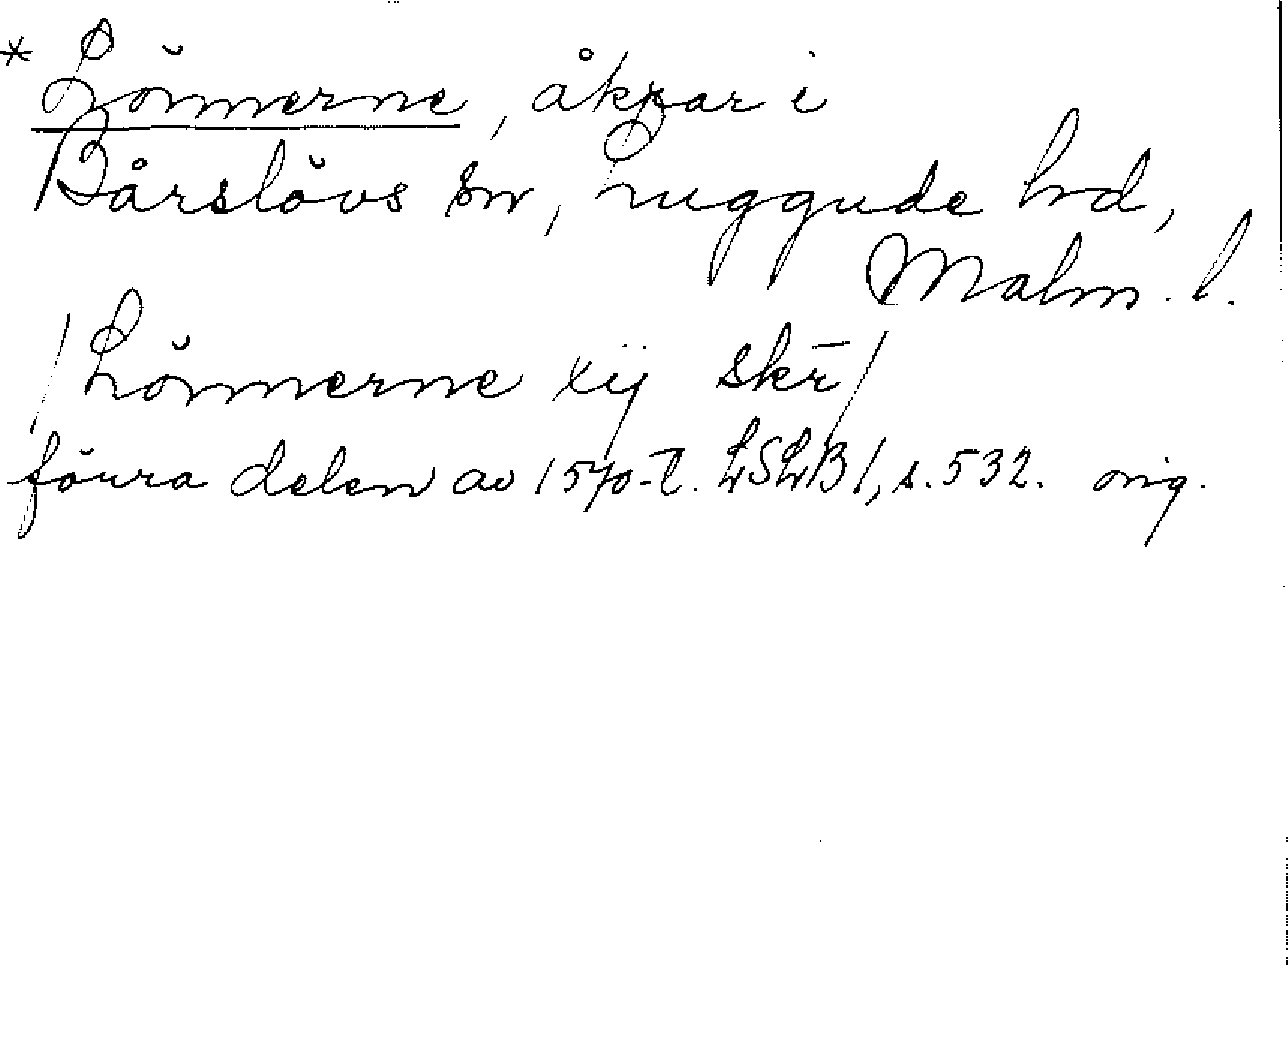 * Lönnerne, åkpar i
Bårslövs sn, Luggude hd,
Malm. l.
/Lönnerne xij skr̄/
förra delen av 1570-t. LSLB 1, s. 532. orig.